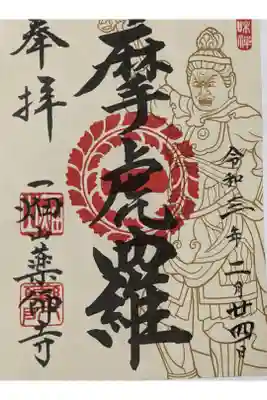 令和三年二月廿四日
摩虎羅
奉拝
一畑山薬師寺